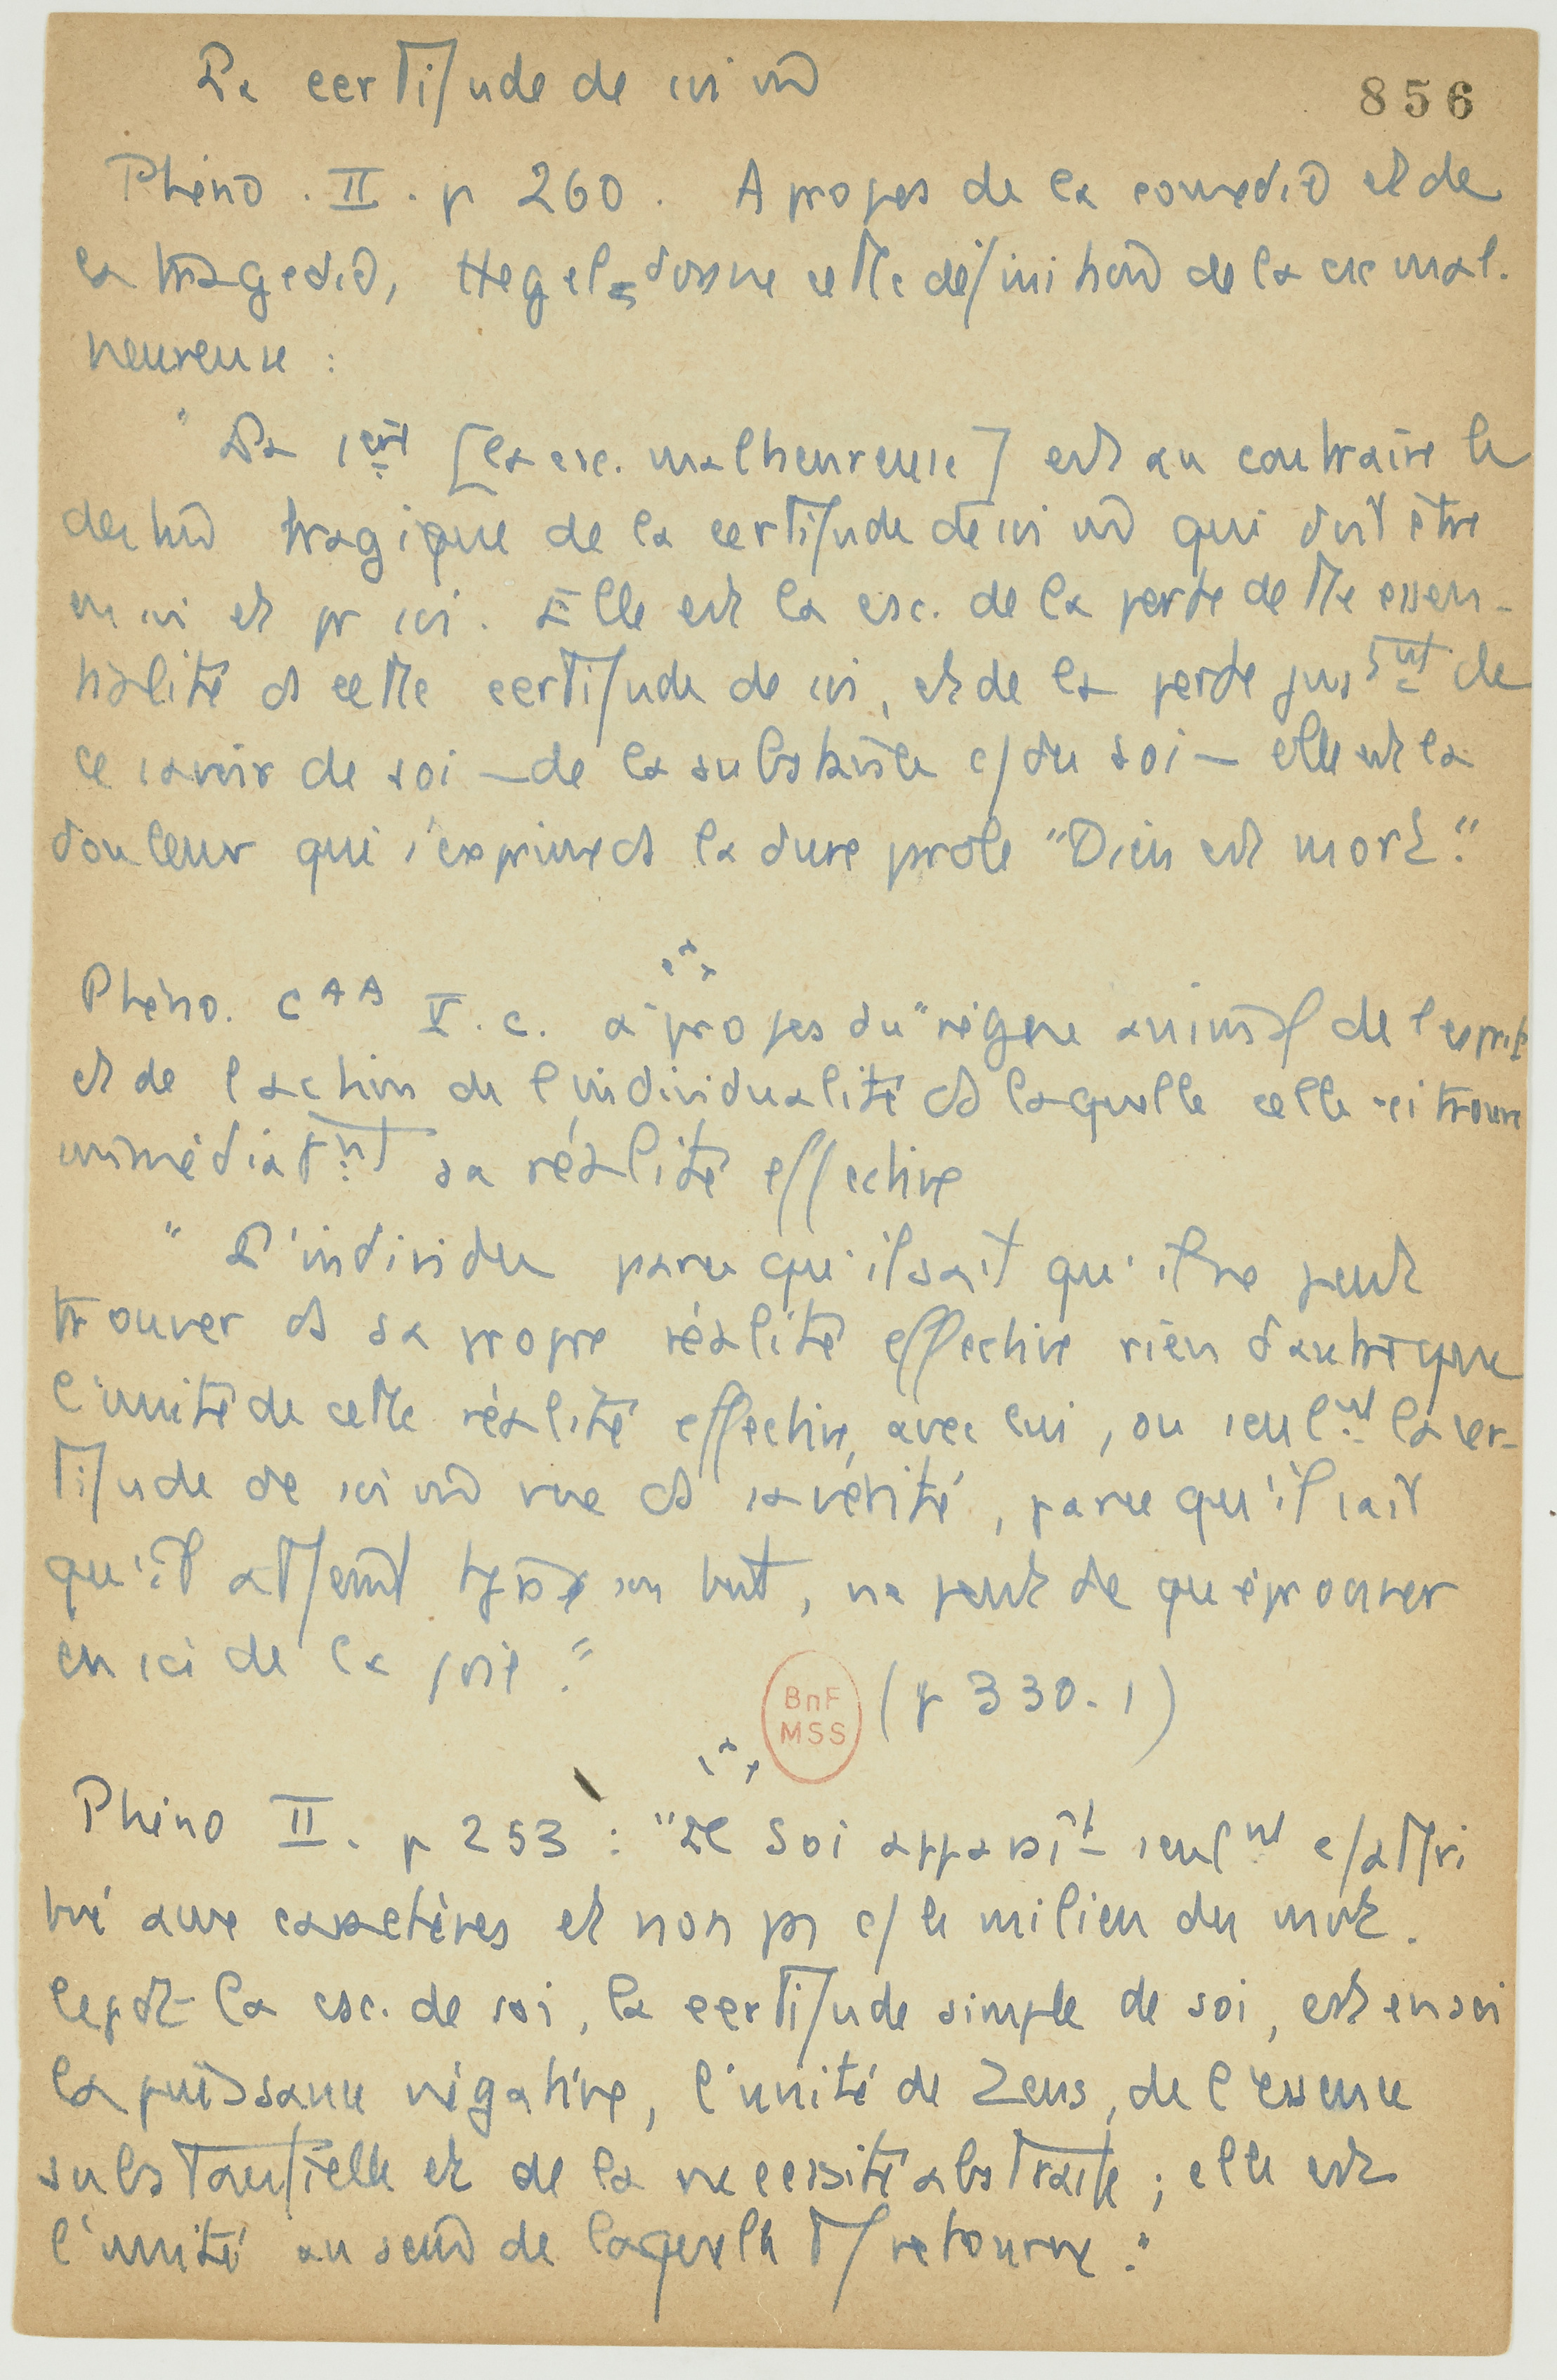 La certitude de soi mm
856
Phéno . II . p 260 . A propos de la comédie et de
la tragédie, Hegel donne cette définition de la csc mal-
heureuse :
" La 1ere [la csc. malheureuse] est au contraire le
destin tragique de la certitude de soi mm qui doit être
en soi et pr soi. Elle est la csc. de la perte de tte essen-
tialité ds cette certitude de soi, et de la perte justnt de
ce savoir de soi — de la substance c/ du soi — elle est la
douleur qui s'exprime ds la dure parole "Dieu est mort."
Phéno. C AA V. c. à propos du "règne animal de l'esprit
et de l'action de l'individualité ds laquelle celle-ci trouve
immédiatnt sa réalité effective
" L'individu parce qu'il sait qu'il ne peut
trouver ds sa propre réalité effective rien d'autre que
l'unité de cette réalité effective, avec lui, ou seulnt la cer-
titude de soi mm ds sa vérité, parce qu'il sait
qu'il atteint tjs son but, ne peut dc qu'éprouver
en soi de la joie."
BnF
MSS
(p 330-1)
Phéno II. p 253 : "Le Soi apparaît seulnt c/ attri
bué aux caractères et non pas c/ le milieu du mvt.
Cepdt la csc. de soi, la certitude simple de soi, est en soi
la puissance négative, l'unité de Zeus, de l'essence
substantielle et de la nécessité abstraite ; elle est
l'unité au sein de laquelle tt retourne."